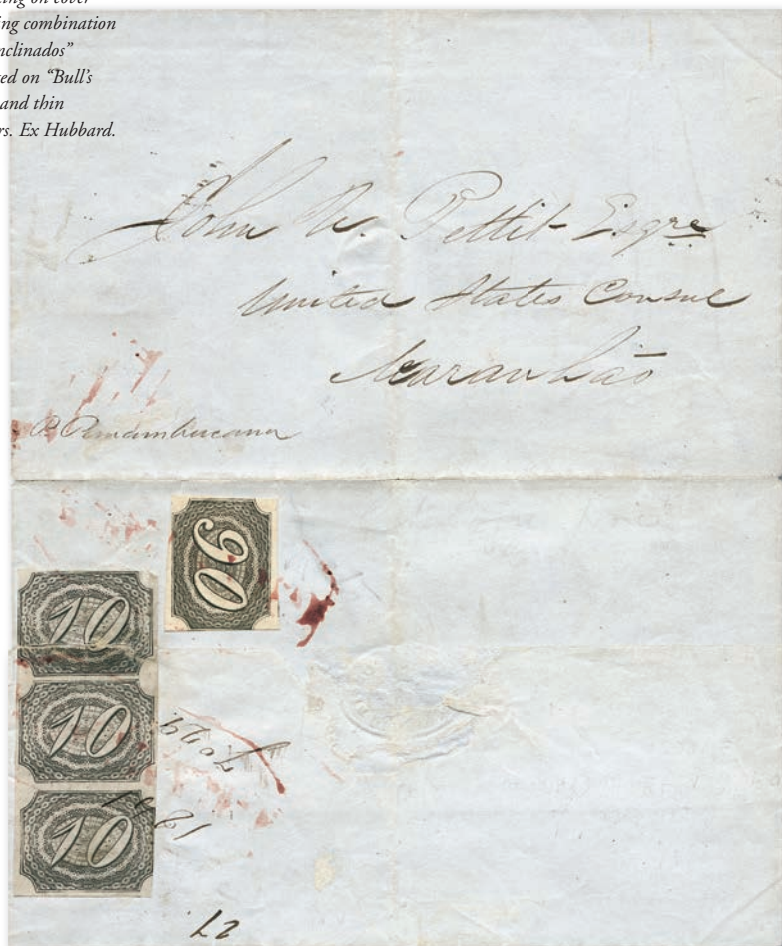 ing combination
nclinados”
ed on “Bull’s
and thin
rs. Ex Hubbard.
John W. Pettit Esqre
United States Consul
Maranhão
P Pernambucana
90
10
10
10
27